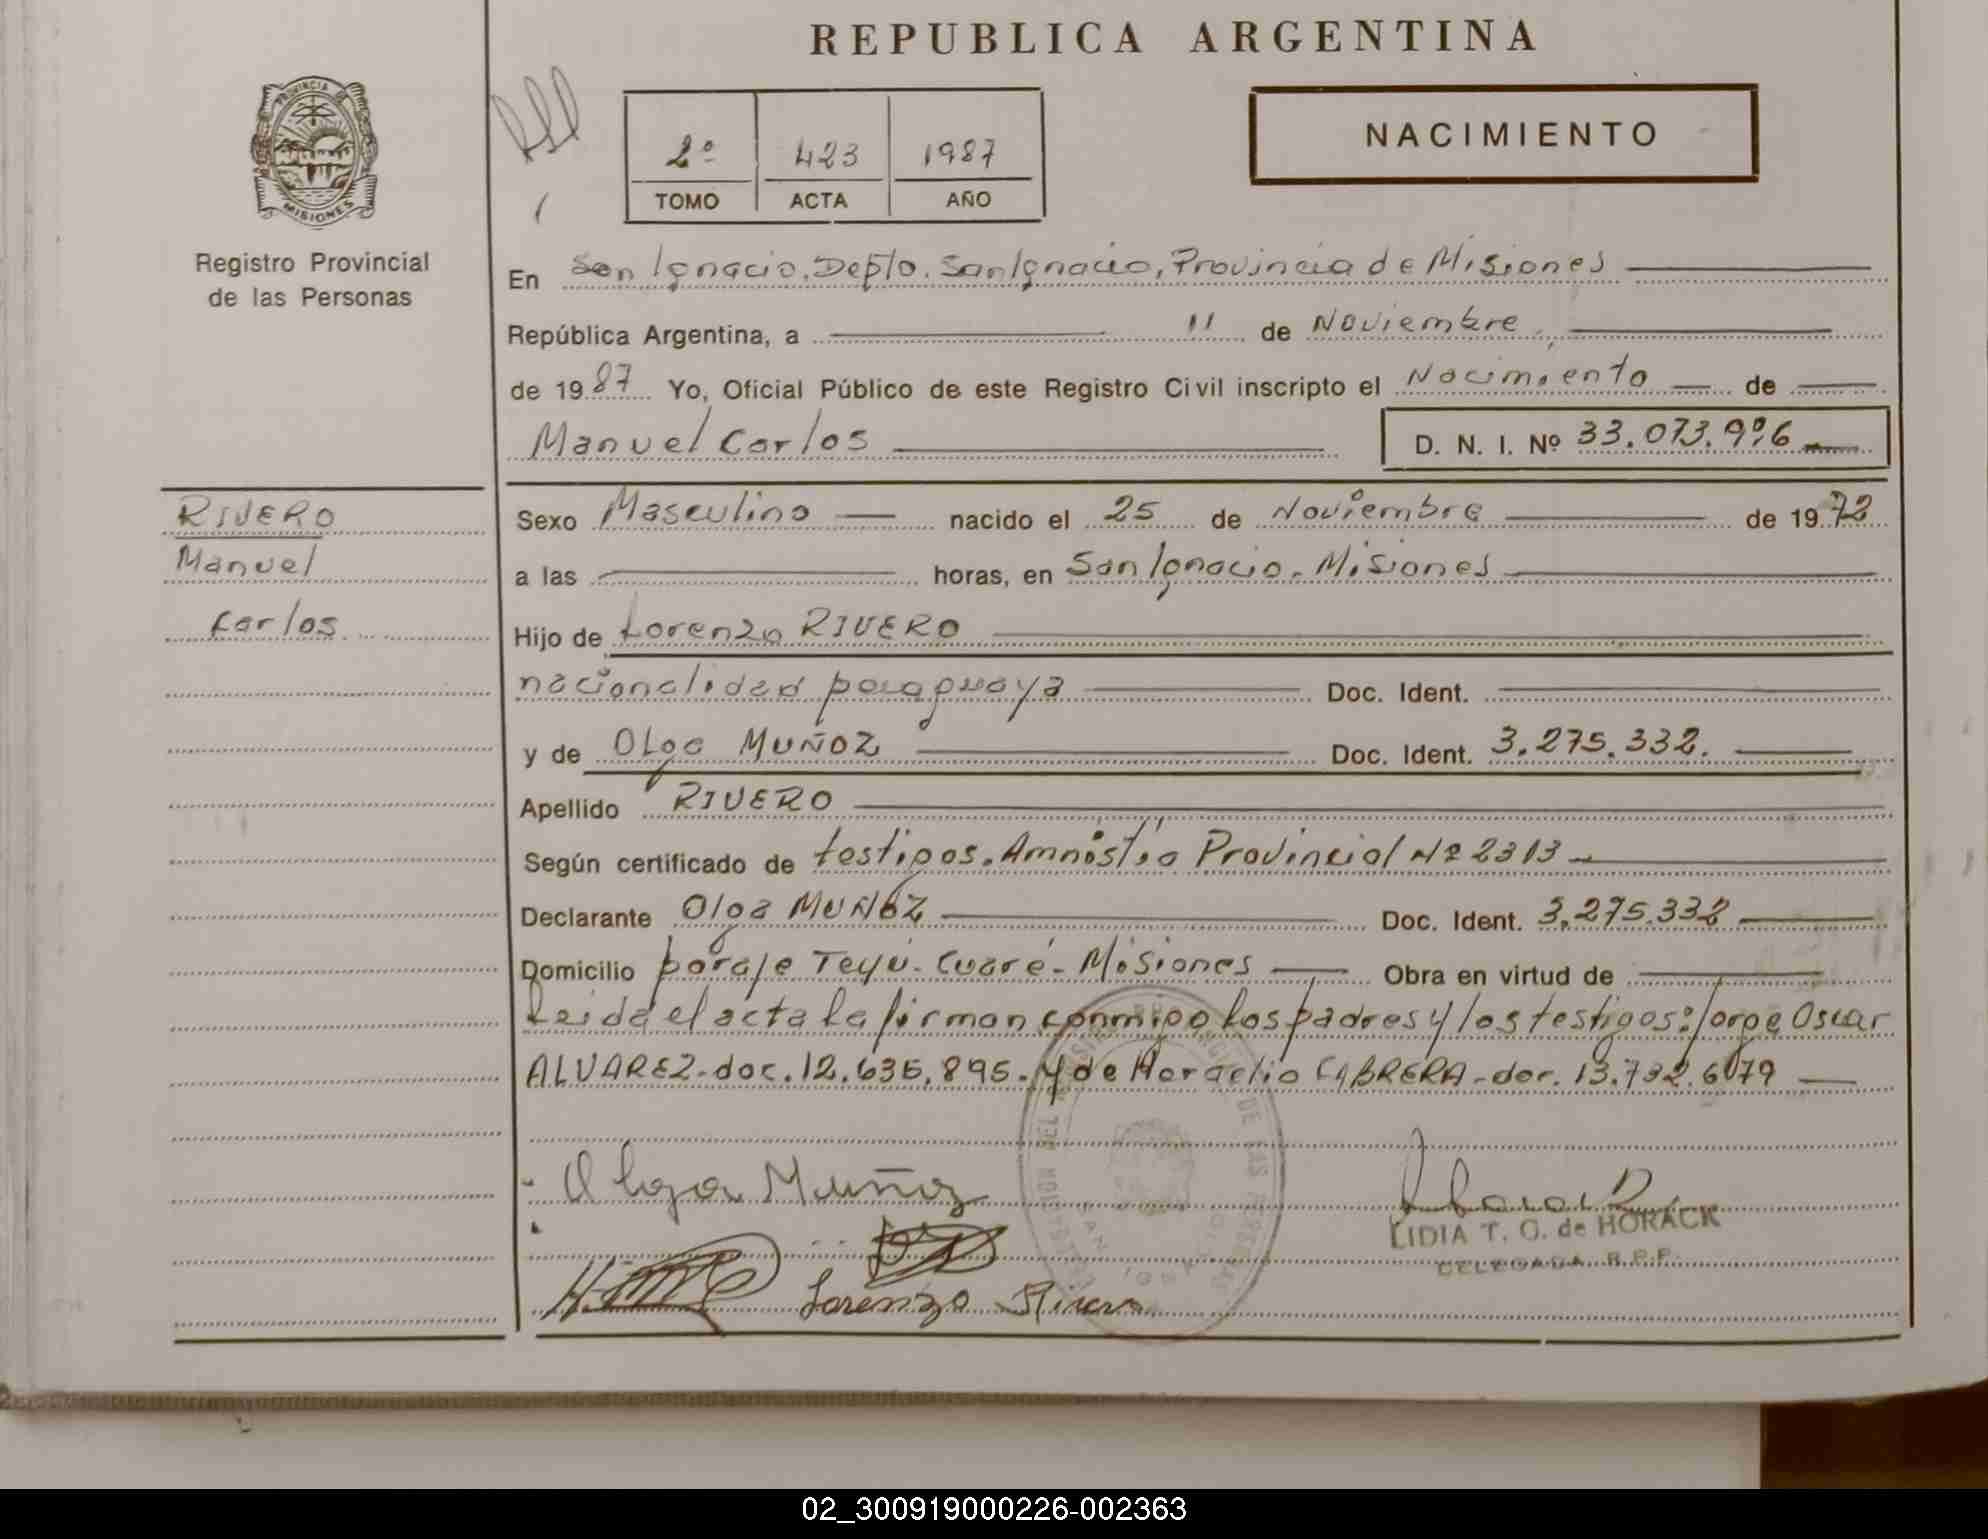 REPUBLICA ARGENTINA
PROVINCIA DE
MISIONES
Registro Provincial
de las Personas
2º 423 1987
TOMO ACTA AÑO
NACIMIENTO
En San Ignacio, Depto. San Ignacio, Provincia de Misiones
República Argentina, a 11 de Noviembre
de 1987 Yo, Oficial Público de este Registro Civil inscripto el Nacimiento de
Manuel Carlos D. N. I. Nº
RIVERO
Manuel
Carlos
Sexo Masculino nacido el 25 de Noviembre de 1972
a las horas, en San Ignacio. Misiones
Hijo de Lorenzo RIVERO
nacionalidad paraguaya Doc. Ident.
y de Olga MUÑOZ Doc. Ident. 3.275.332.
Apellido RIVERO
Según certificado de testigos. Amnistía Provincial Nº 2313
Declarante Olga MUÑOZ Doc. Ident. 3.275.332
Domicilio paraje Teyú-Cuaré-Misiones Obra en virtud de
Leida el acta la firman conmigo los padres y los testigos: Jorge Oscar
ALVAREZ-doc. 12.635.895. y de Horaclio CABRERA-doc.
Olga Muñoz
LIDIA T. G. de HORACK
DELEGADA R.P.P.
Lorenzo Rivero
02_300919000226-002363